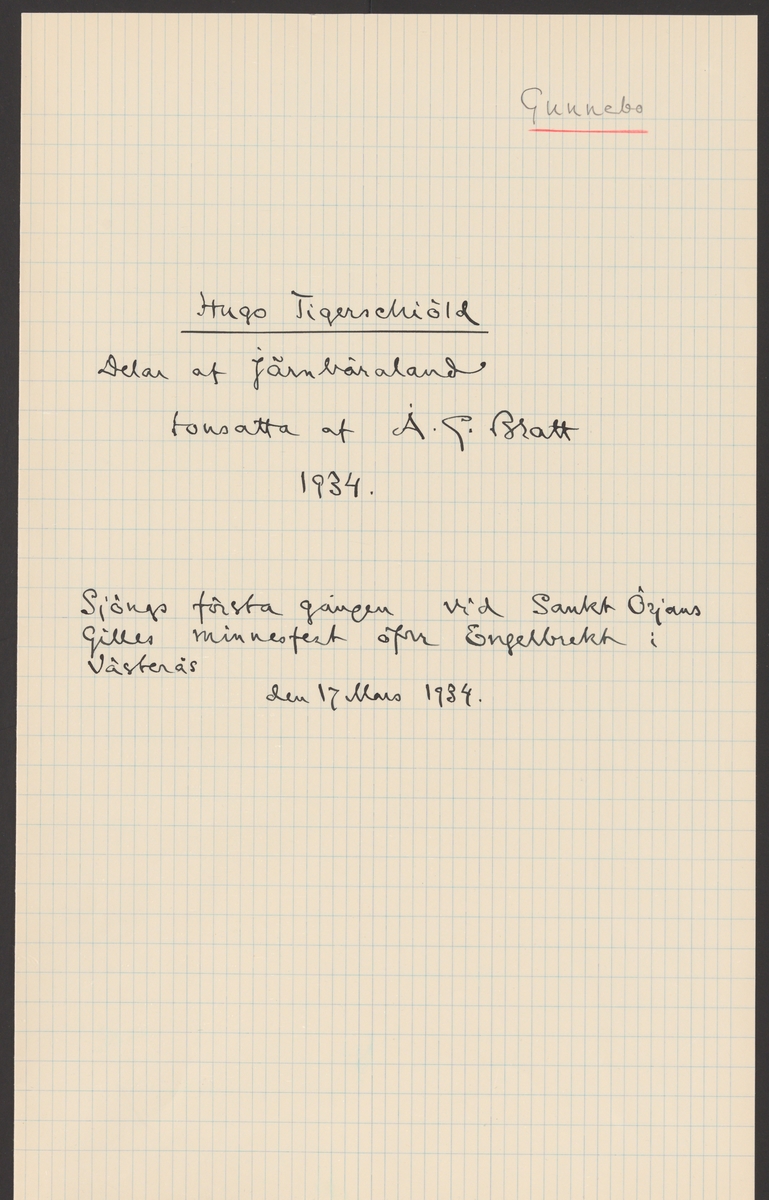 Gunnebo
Hugo Tigerschiöld
Delar af Järnbäraland
tonsatta af A. G. Bratt
1934.
Sjöngs första gången vid Sankt Örjans
Gilles minnesfest öfver Engelbrekt i
Västerås
den 17 Mars 1934.